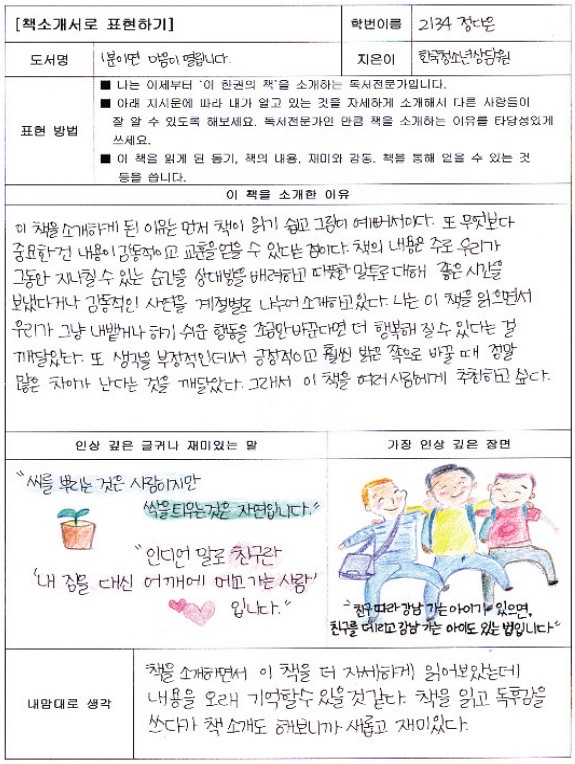 [책소개서로 표현하기]
학번이름
2134 정다은
도서명
1분이면 마음이 열립니다.
지은이
한국청소년상담원
표현 방법
■ 나는 이제부터 '이 한권의 책'을 소개하는 독서전문가입니다.
■ 아래 지시문에 따라 내가 알고 있는 것을 자세하게 소개해서 다른 사람들이
잘 알 수 있도록 해보세요. 독서전문가인 만큼 책을 소개하는 이유를 타당성있게
쓰세요.
■ 이 책을 읽게 된 동기, 책의 내용, 재미와 감동, 책을 통해 얻을 수 있는 것
등을 씁니다.
이 책을 소개한 이유
이 책을 소개하게 된 이유는 먼저 책이 읽기 쉽고 그림이 예뻐서이다. 또 무엇보다
중요한건 내용이 감동적이고 교훈을 얻을 수 있다는 점이다. 책의 내용은 주로 우리가
그동안 지나칠 수 있는 순간을 상대방을 배려하고 따뜻한 말투로 대해 좋은 시간을
보냈다거나 감동적인 사연을 계절별로 나누어 소개하고있다. 나는 이 책을 읽으면서
우리가 그냥 내뱉거나 하기 쉬운 행동을 조금만 바꾼다면 더 행복해 질 수 있다는 걸
깨달았다. 또 생각을 부정적인데서 긍정적이고 훨씬 밝은 쪽으로 바꿀 때 정말
많은 차이가 난다는 것을 깨달았다. 그래서 이 책을 여러사람에게 추천하고 싶다.
인상 깊은 글귀나 재미있는 말
가장 인상 깊은 장면
"씨를 뿌리는 것은 사람이지만
싹을 틔우는것은 자연입니다."
"인디언 말로 친구란
'내 짐을 대신 어깨에 메고 가는 사람'
입니다."
"친구따라 강남 가는 아이가 있으면,
친구를 데리고 강남 가는 아이도 있는 법입니다"
내맘대로 생각
책을 소개하면서 이 책을 더 자세하게 읽어보았는데
내용을 오래 기억할수 있을것 같다. 책을 읽고 독후감을
쓰다가 책 소개도 해보니까 새롭고 재미있다.